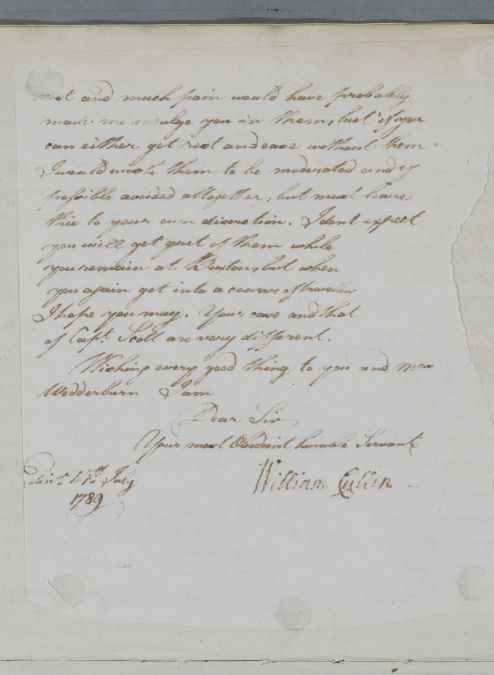 and much pain would have probably
made me indulge you in them, but if you
can either get rest and ease without them
I would wish them to be moderated and if
possible avoided altogether, but must leave
this to your own discretion. I dont expect
you will get quit of them while
you remain at Buxton, but when
you again get into a course of travelling
I hope you may. Your case and that
of Capt. Scott are very different.
Wishing every good thing to you and Mrs
Wedderburn I am
Dear Sir
Your most Obedient humble Servant
William Cullen
July
1789